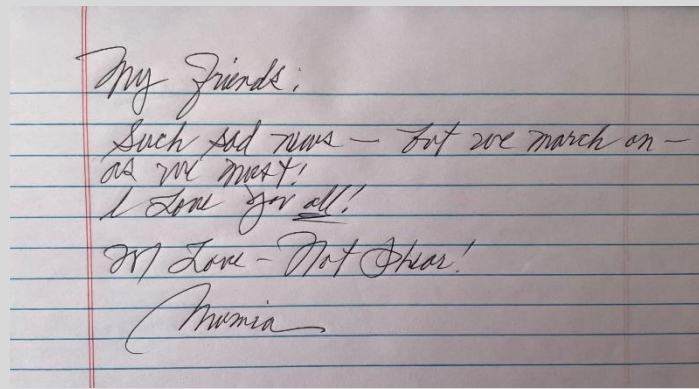 My Friends:
Such sad news – but we march on –
as we must!
I Love you all!
In Love – Not Phear!
Mumia